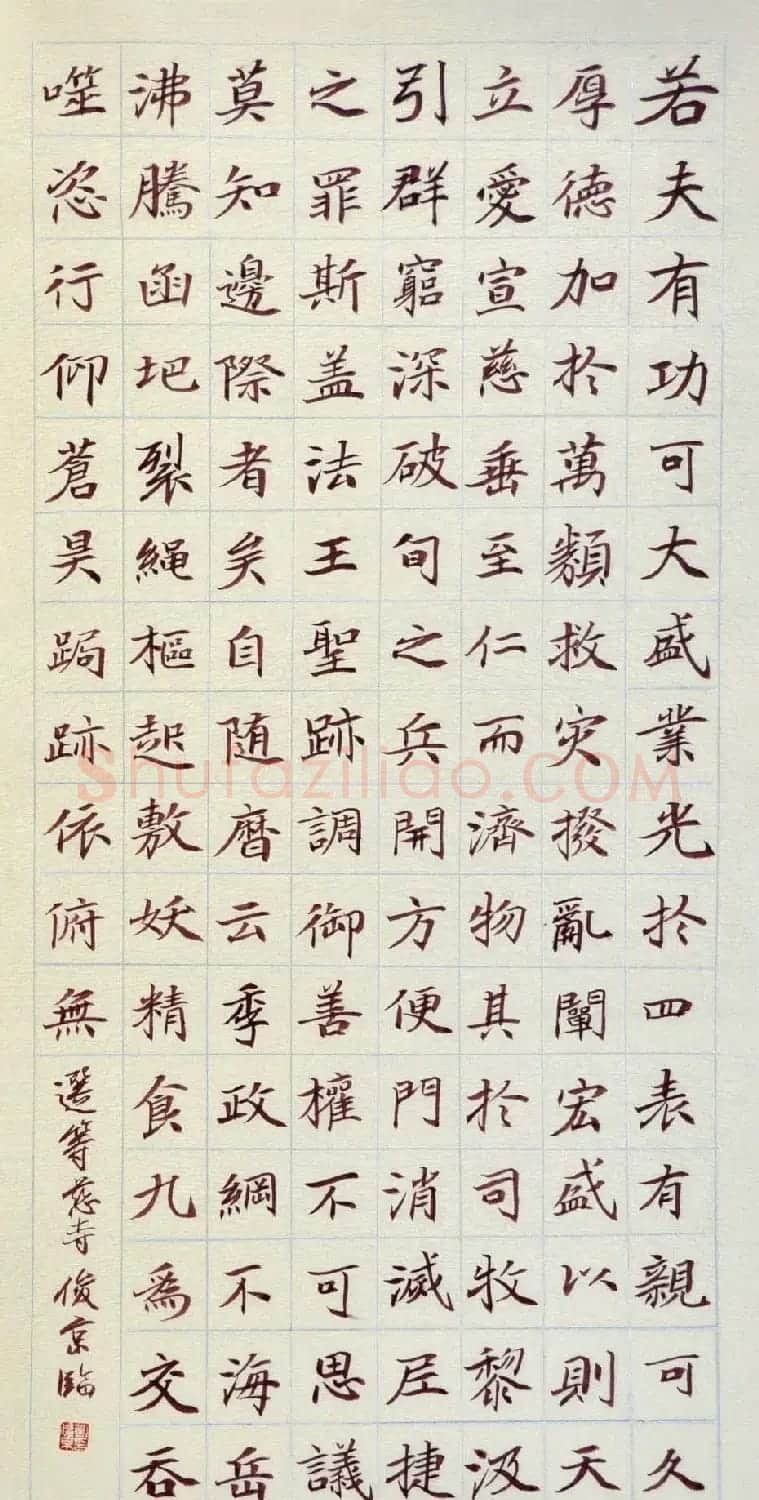 若夫有功可大盛業光扵四表有親可久
厚德加扵萬類救灾撥亂闡宏盛以則天
立愛宣慈垂至仁而濟物其扵司牧黎汲
引群窮深破旬之兵開方便門消滅尼捷
之罪斯盖法王聖跡調御善權不可思議
莫知邊際者矣自随曆云季政綱不海岳
沸騰函圮裂繩樞起敷妖精食九為交吞
噬恣行仰蒼昊跼跡依俯無
選等慈寺 俊京臨
Shufaziliao.COM